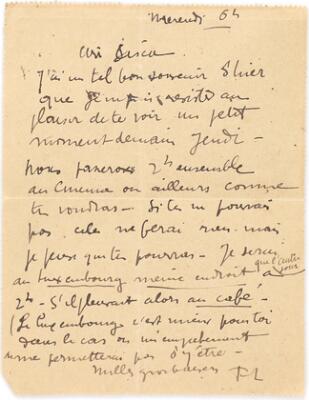 Mercredi 6h
J'ai un tel bon souvenir d'hier
que je ne puis résister au
plaisir de te voir un petit
moment demain Jeudi –
Nous passerons 2h ensemble
au Cinéma ou ailleurs comme
tu voudras – Si tu ne pouvais
pas cela ne ferait rien mais
je pense que tu pourras – Je serai
que l'autre
au Luxembourg même endroit à jour
2h – S'il pleuvait alors au café –
(Le Luxembourg c'est mieux pour toi
dans le cas où un empêchement
ne me permettrait pas d'y être –
Mille gros baisers